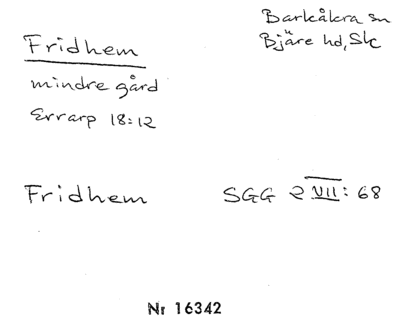 Barkåkra sn
Bjäre hd, Sk
Fridhem
mindre gård
Errarp 18:12
Fridhem SGG 2 VII: 68
Nr 16342